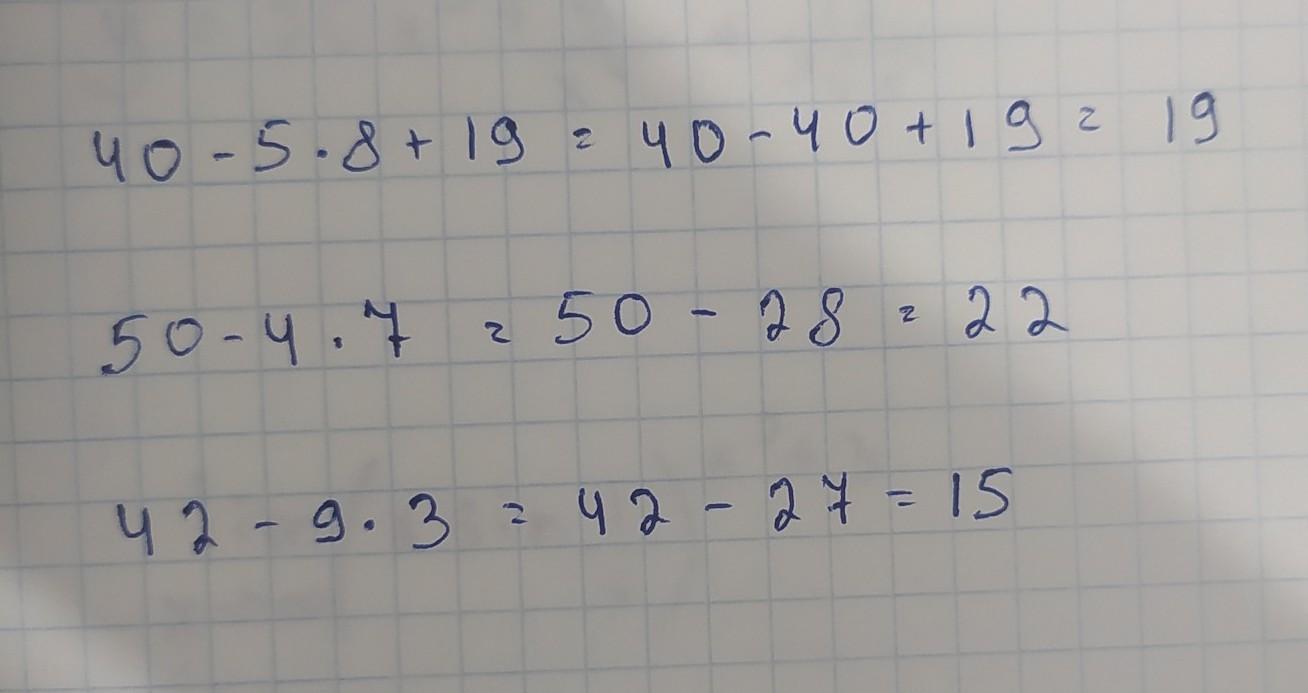 40 - 5 · 8 + 19 = 40 - 40 + 19 = 19
50 - 4 · 7 = 50 - 28 = 22
42 - 9 · 3 = 42 - 27 = 15